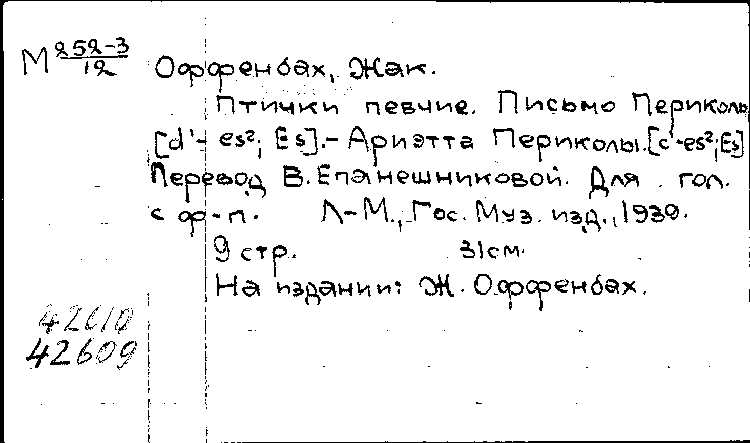 М 252-3/12
Оффенбах, Жак.
Птички певчие. Письмо Периколы
[d'- es²; Es].- Ариэтта Периколы.[c'-es²; Es]
Перевод В.Епанешниковой. Для гол.
с ф-п. Л-М., Гос. Муз. изд., 1939.
9 стр. 31см.
На издании: Ж. Оффенбах.
42610
42609